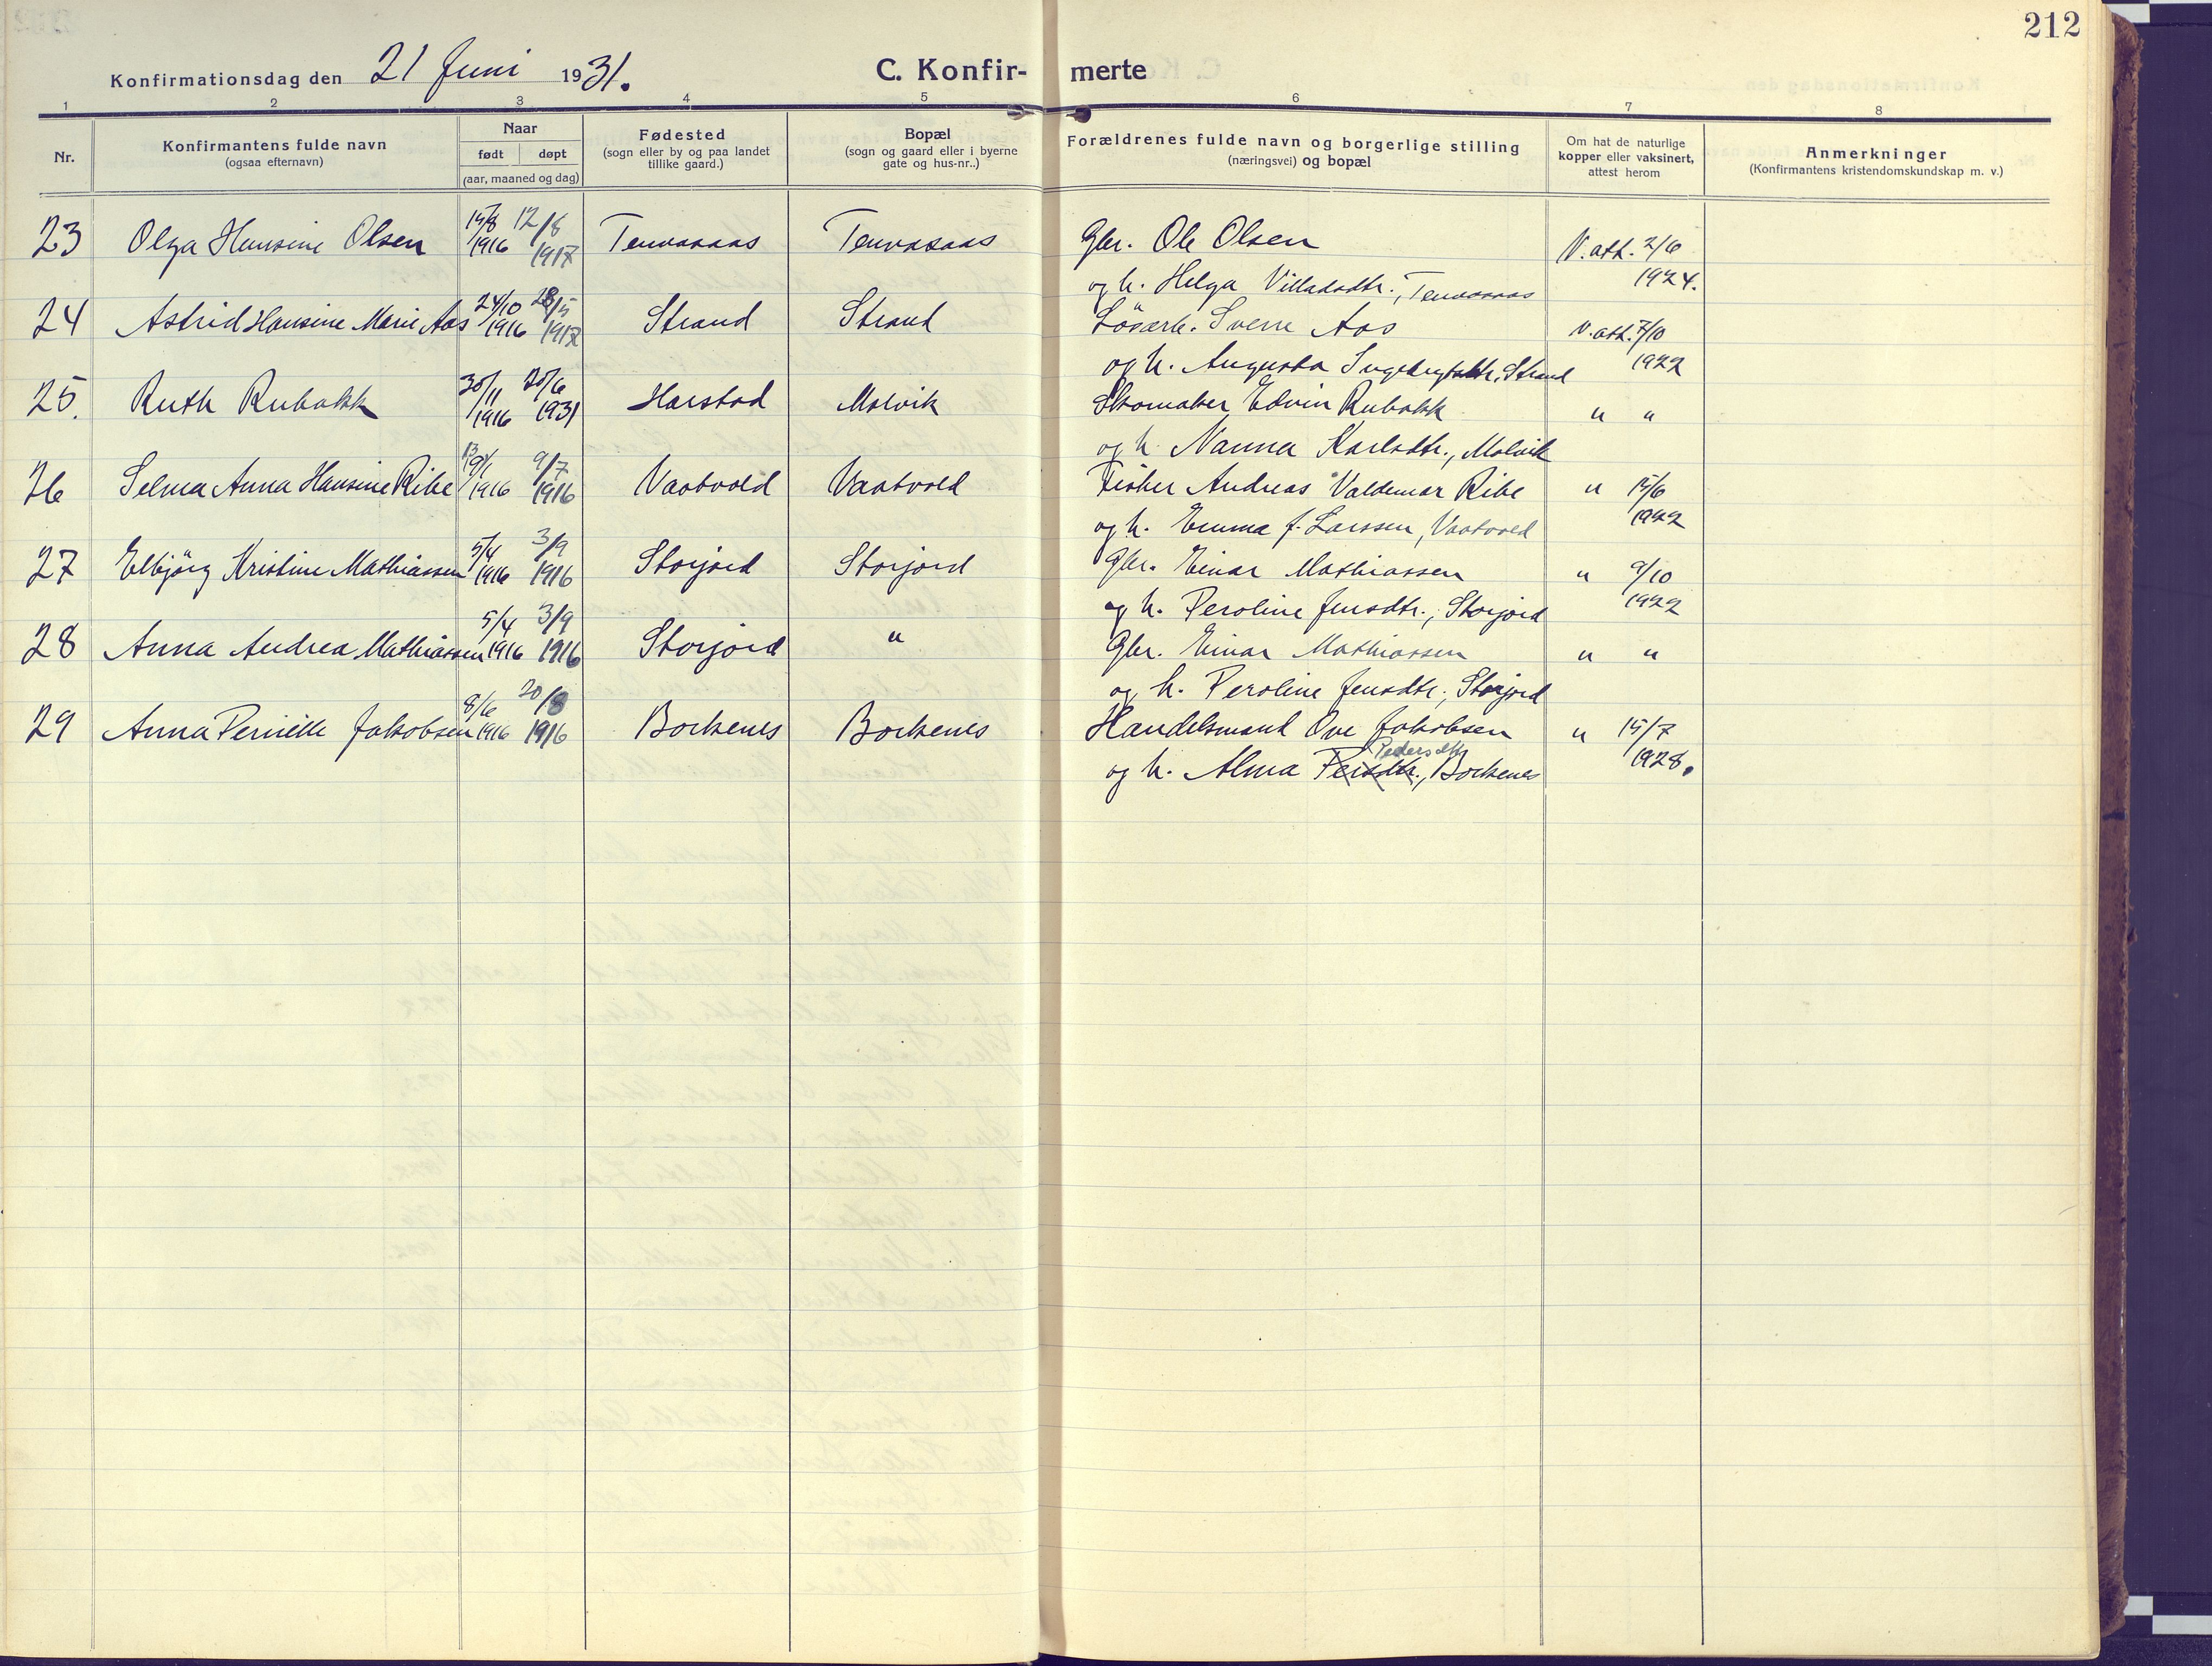 212
Konfirmationsdag den 21 Juni 1931.
C. Konfir- merte
1 2 3 4 5 6 7 8
Nr.
Konfirmantens fulde navn
(ogsaa efternavn)
Naar
født døpt
(aar, maaned og dag)
Fødested
(sogn eller by og paa landet
tillike gaard.)
Bopæl
(sogn og gaard eller i byerne
gate og hus-nr..)
Forældrenes fulde navn og borgerlige stilling
(næringsvei) og bopæl
Om hat de naturlige
kopper eller vaksinert,
attest herom
Anmerkninger
(Konfirmantens kristendomskundskap m. v.)
23 Olga Hansine Olsen 1916 12/8 1917 Tenvasaas Tenvasaas Gbr. Ole Olsen V. att. 2/6
og h. Helga Villadsdtr., Tenvasaas 1924.
24 Astrid Hansine Marie Aas 24/10 1916 1917 Strand Strand Løsarb. Sverre Aas V. att. 7/10
og h. Augusta Strand 1922
25. Ruth Rubakk 30/11 1916 20/6 1931 Harstad Molvik Skomaker Edvin Rubakk " "
og h Nanna Karlsdtr., Molvik
26 Selma Anna Hansine Ribe 1916 9/7 1916 Vaatvold Vaatvold Fisker Andreas Valdemar Ribe " 15/6
og h. Emma f. Larssen, Vaatvold 1922
27 Elbjörg Kristine Mathiassen 5/4 1916 3/9 1916 Storjord Storjord Gbr. Einar Mathiassen " 9/10
og h. Peroline Jensdtr., Storjord 1922
28 Anna Andrea Mathiassen 5/4 1916 3/9 1916 Storjord " Gbr. Einar Mathiassen " "
og h. Peroline Jensdtr., Storjord
29 Anna Pernille Jakobsen 8/6 1916 20/8 1916 Borkenes Borkenes Handelsmand Ove Jakobsen " 15/7
Pedersdtr
og h. Alma Persdtr., Borkenes 1928.